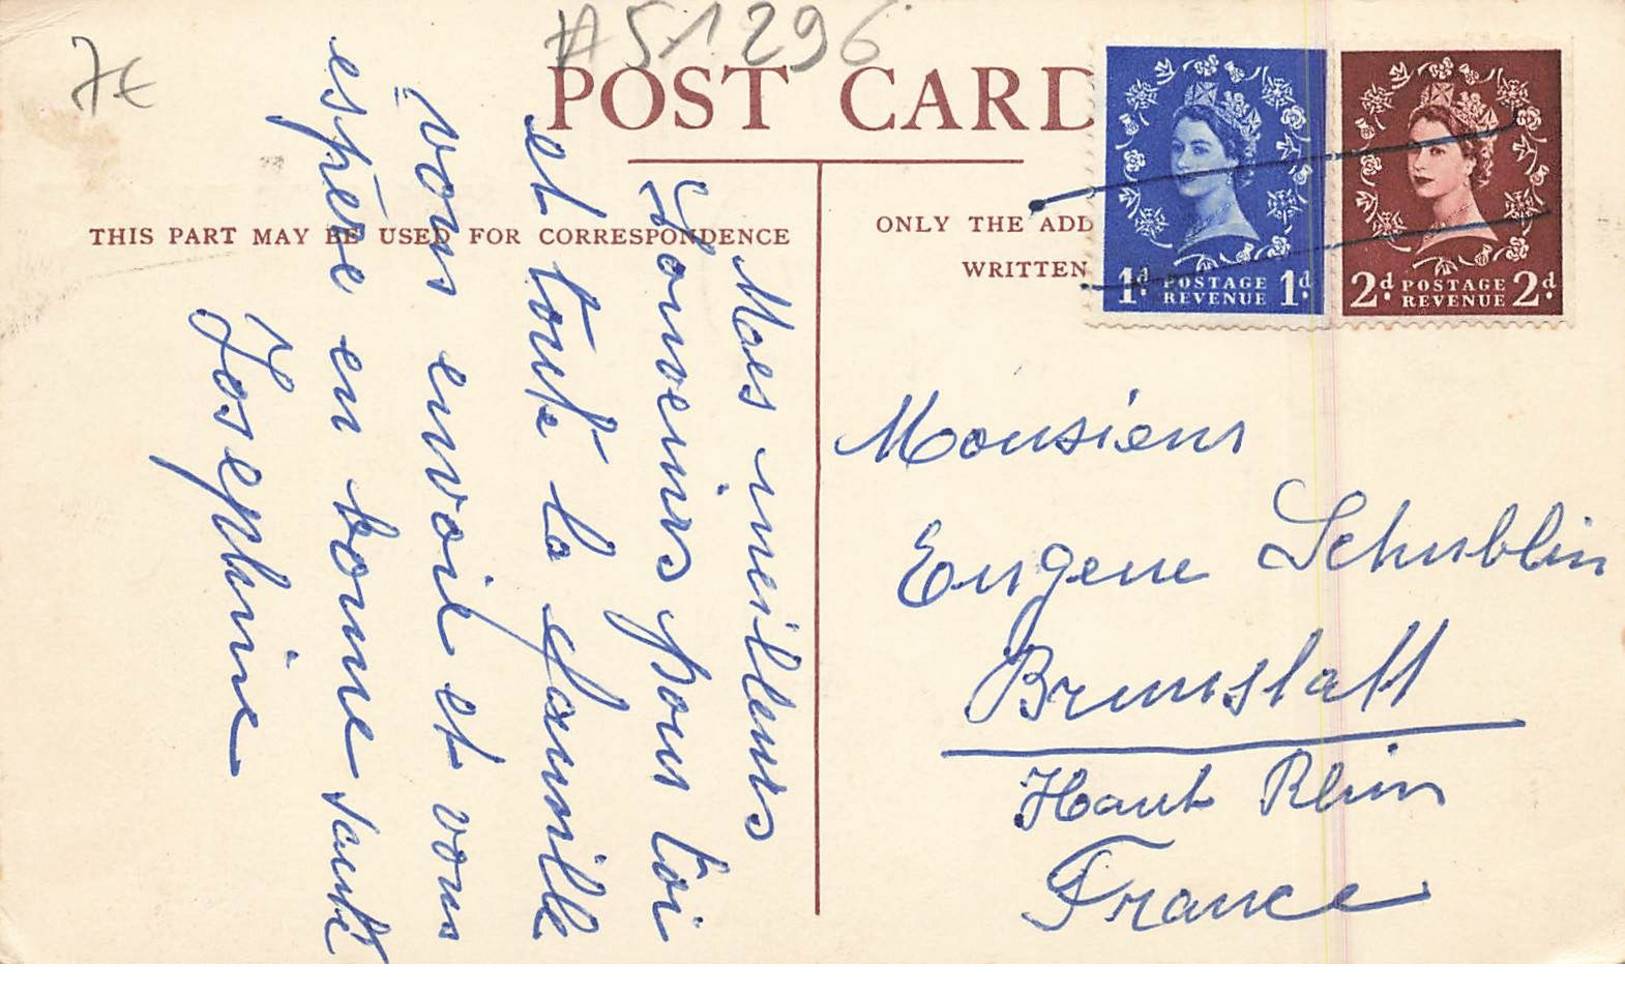 7€
#51296
POST CARD
THIS PART MAY BE USED FOR CORRESPONDENCE
ONLY THE ADD
WRITTEN
1d. POSTAGE REVENUE 1d.
2d. POSTAGE REVENUE 2d.
Maes meilleurs
Souvenirs pour toi
et toute la famille
vous envoie et vous
espère en bonne santé
Josephine
Monsieur
Eugene Schublin
Brunstatt
Haut Rhin
France